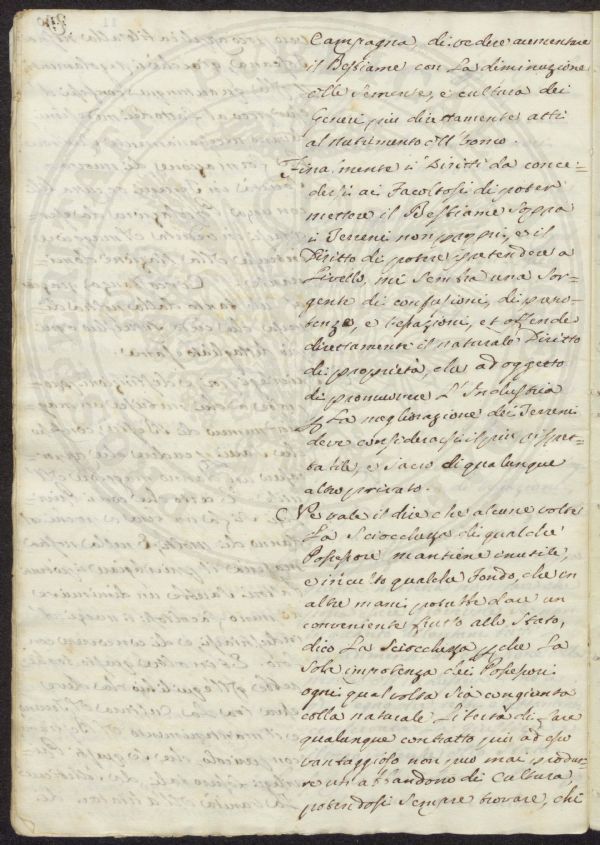 Campagna, di vedere aumentare
il Bestiame con La diminuzione
delle Semente, e cultura dei
Generi più direttamente atti
al nutrimento dell'Uomo.
Finalmente i Diritti da conce=
dersi ai Facoltosi di poter
mettere il Bestiame Soppa
i Terreni non proprj, e il
Diritto di potere pretendere a
Livello, mi Sembra una Sor=
gente di confusioni, di prepo=
tenze, e vessazioni, et offende
direttamente il naturale Diritto
di proprietà, che ad oggetto
di promuovere L'Industria
p La megliorazione dei Terreni
deve considerarsi il più rispet=
tabile, e Sacro di qualunque
altro privato.
Ne vale il dire che alcune volte
La Sciocchezza di qualche
Possessore mantiene inutile,
e inculto qualche Fondo, che in
altre mani potrebbe dare un
conveniente frutto allo Stato,
dico La Sciocchezza, pche La
Sola impotenza dei Possessori
ogni qual volta Sia congiunta
colla naturale Libertà di fare
qualunque contratto più ad essi
vantaggioso non può mai produr=
re un abbandono di Cultura,
potendosi Sempre trovare, chi